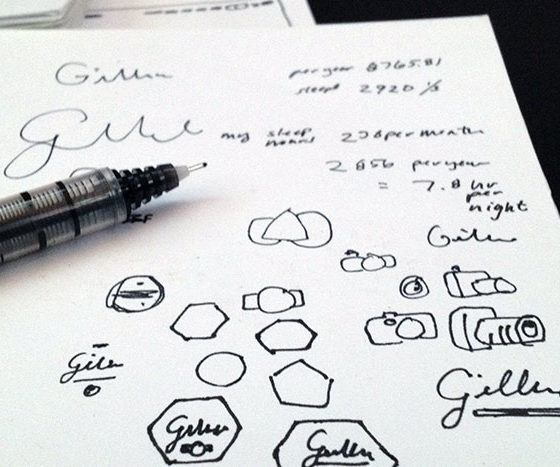 Gillen
per year 8765.81
sleep 2920 1/3
Gillen
my sleep hours 238 per month
2856 per year
= 7.8 hr per night
Gillen
Gillen
Gillen
Gillen
Gillen